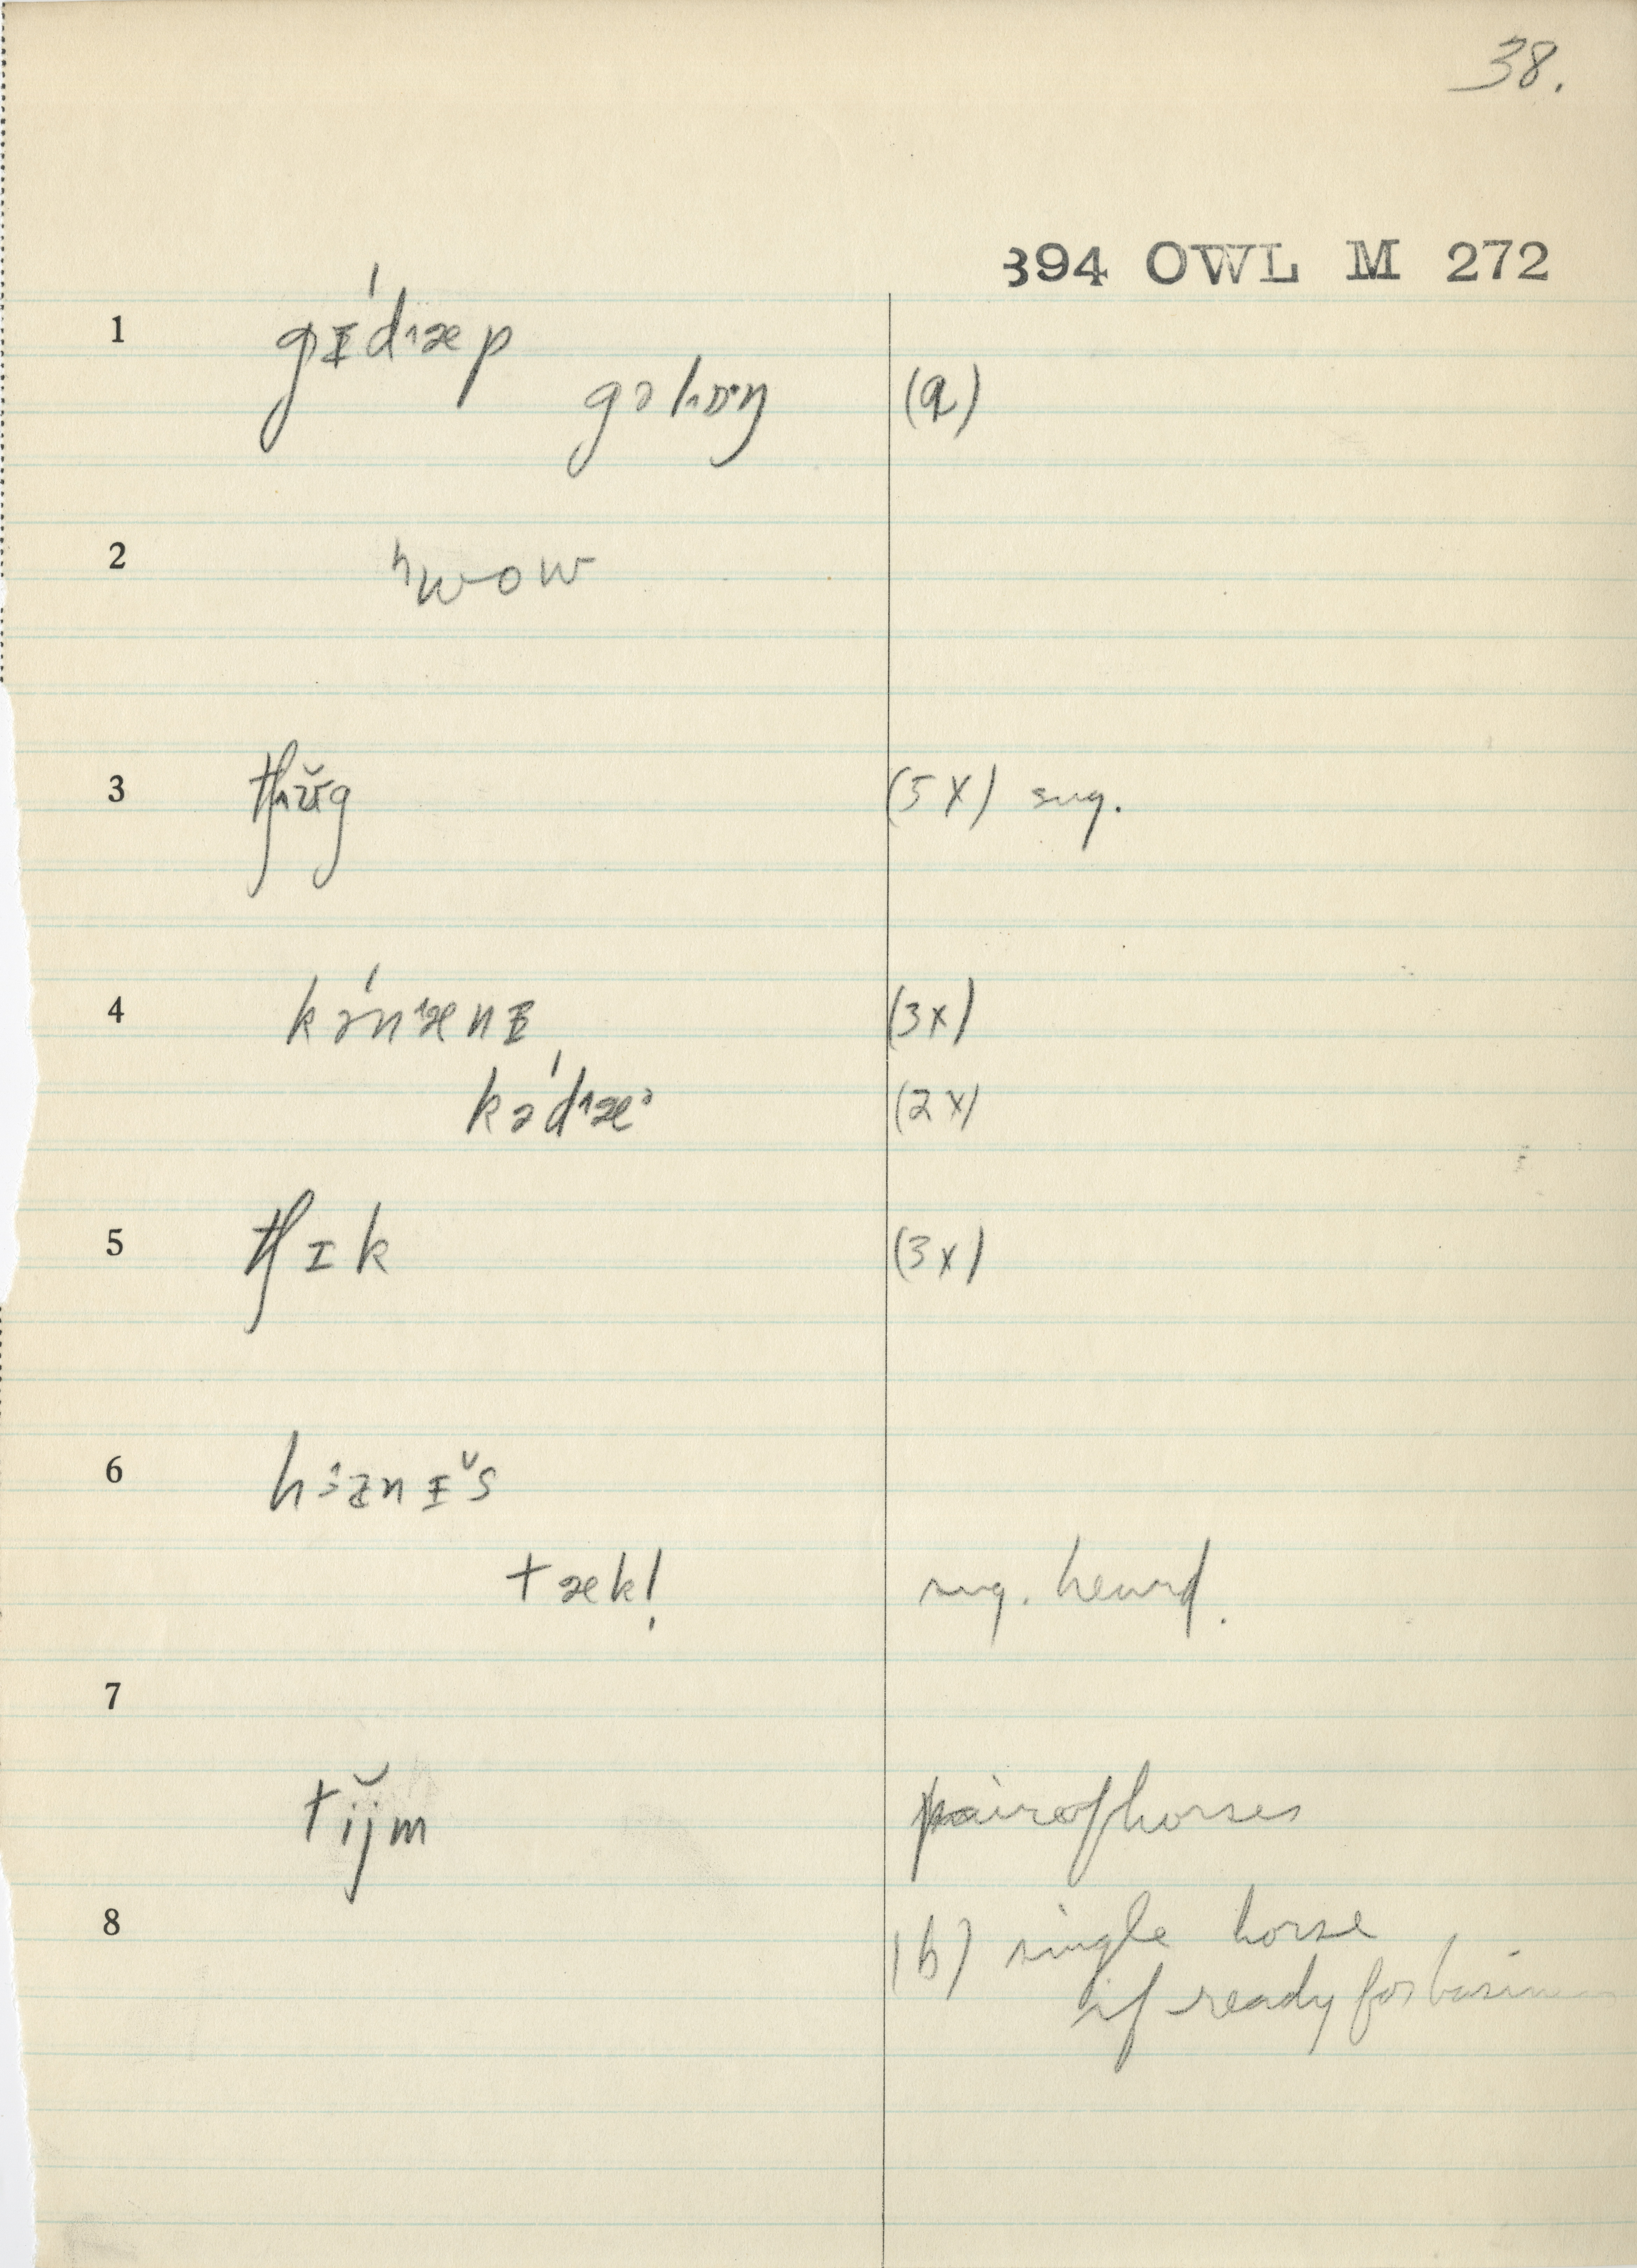 38.
394 OWL M 272
1 gɪ́dæp
gəlɒŋ (a)
2 ʰwow
3 (5X) sug.
4 kə́nænɪ (3x)
kədæ (2x)
5 tʃɪk (3x)
6
tæk! sug. heard.
7
tĭjm pair of horses
8 (b) single horse
if ready for business